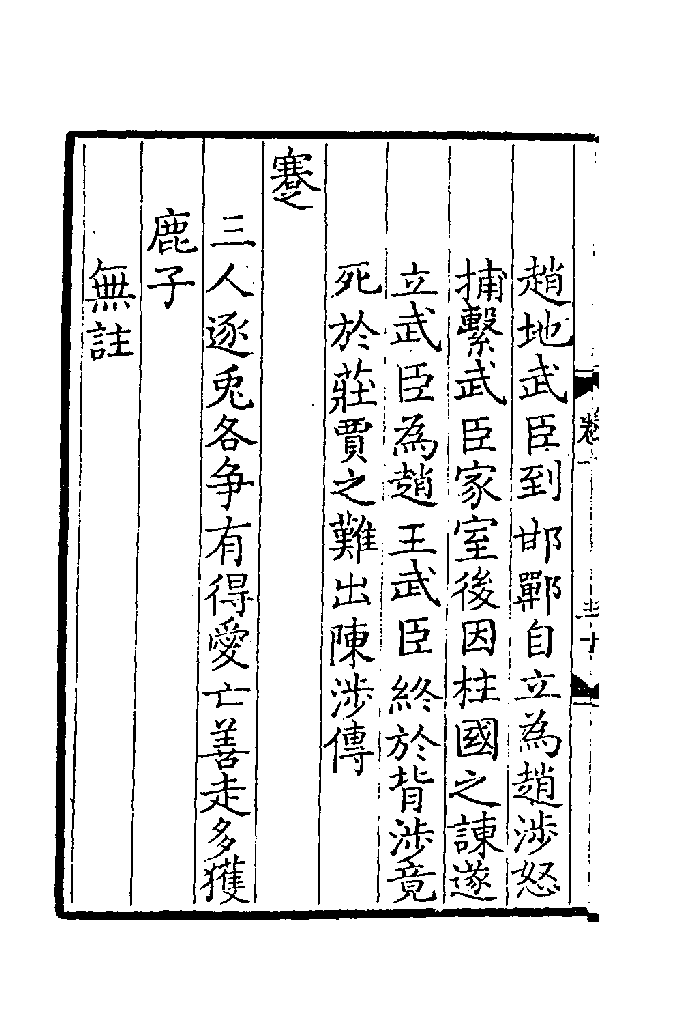 趙地武臣到邯鄲自立為趙涉怒
捕繫武臣家室後因柱國之諫遂
立武臣為趙王武臣終於背涉竟
死於莊賈之難出陳涉傳
蹇之
三人逐兎各争有得愛亡善走多獲
鹿子
無註